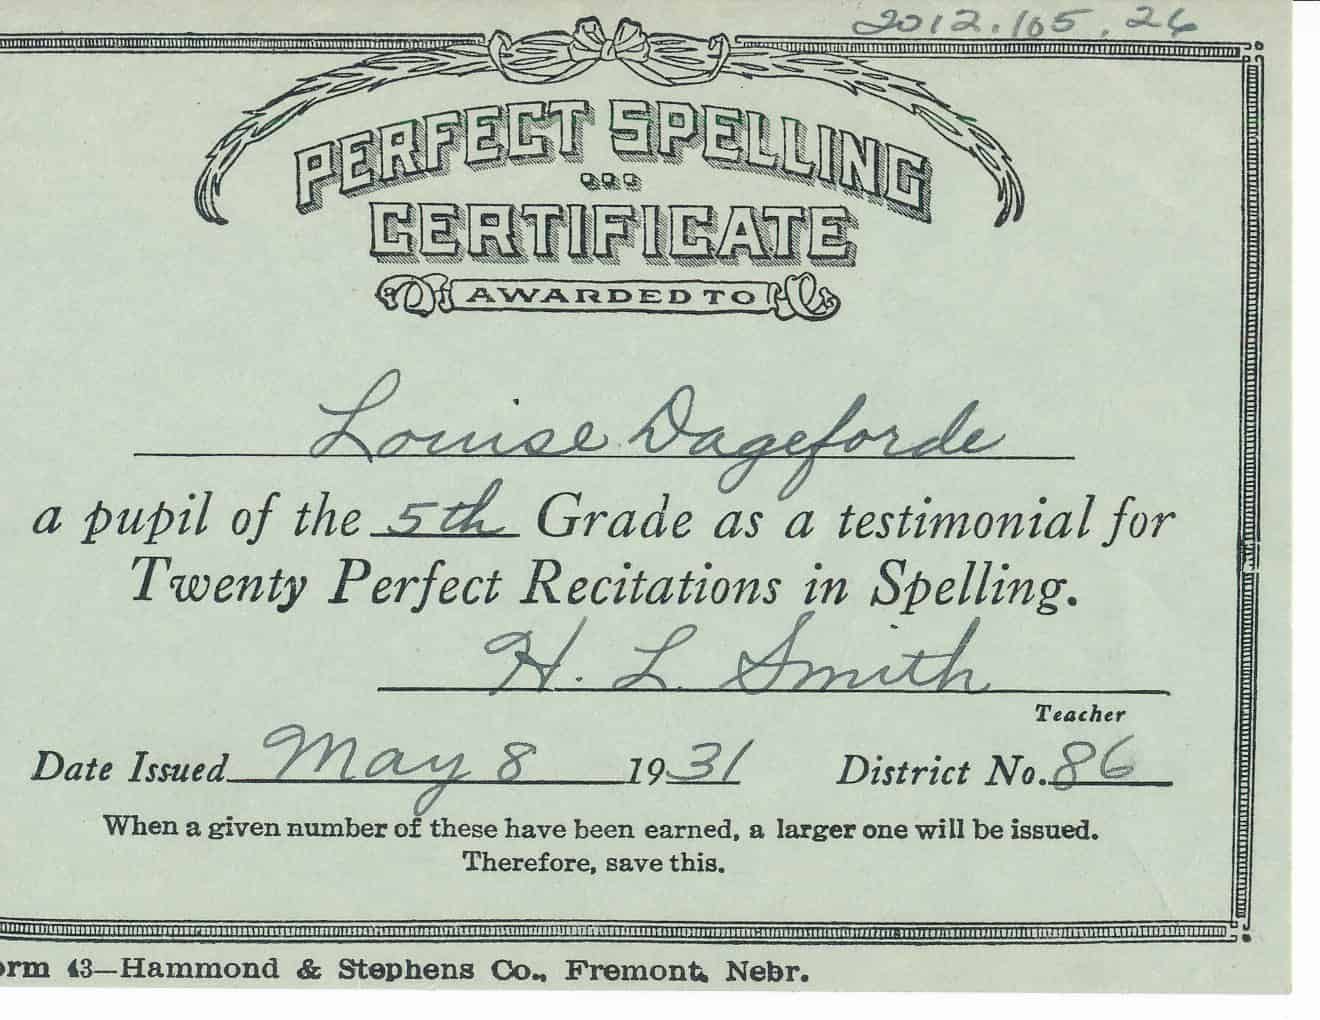 2012.105.26
PERFECT SPELLING
CERTIFICATE
AWARDED TO
Louise Dageforde
a pupil of the 5th Grade as a testimonial for
Twenty Perfect Recitations in Spelling.
H. L. Smith
Teacher
Date Issued May 8 1931 District No. 86
When a given number of these have been earned, a larger one will be issued.
Therefore, save this.
orm 43—Hammond & Stephens Co., Fremont, Nebr.